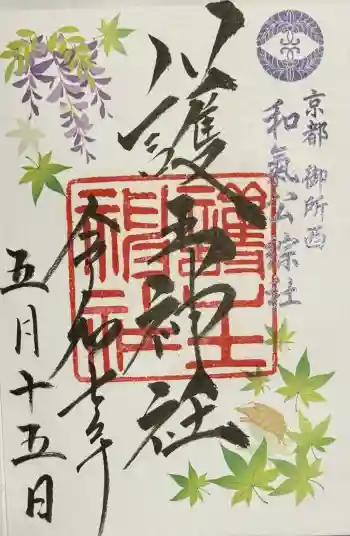 京都 御所西
和氣公綜社
護王神社
護王神社
令和七年
五月十五日